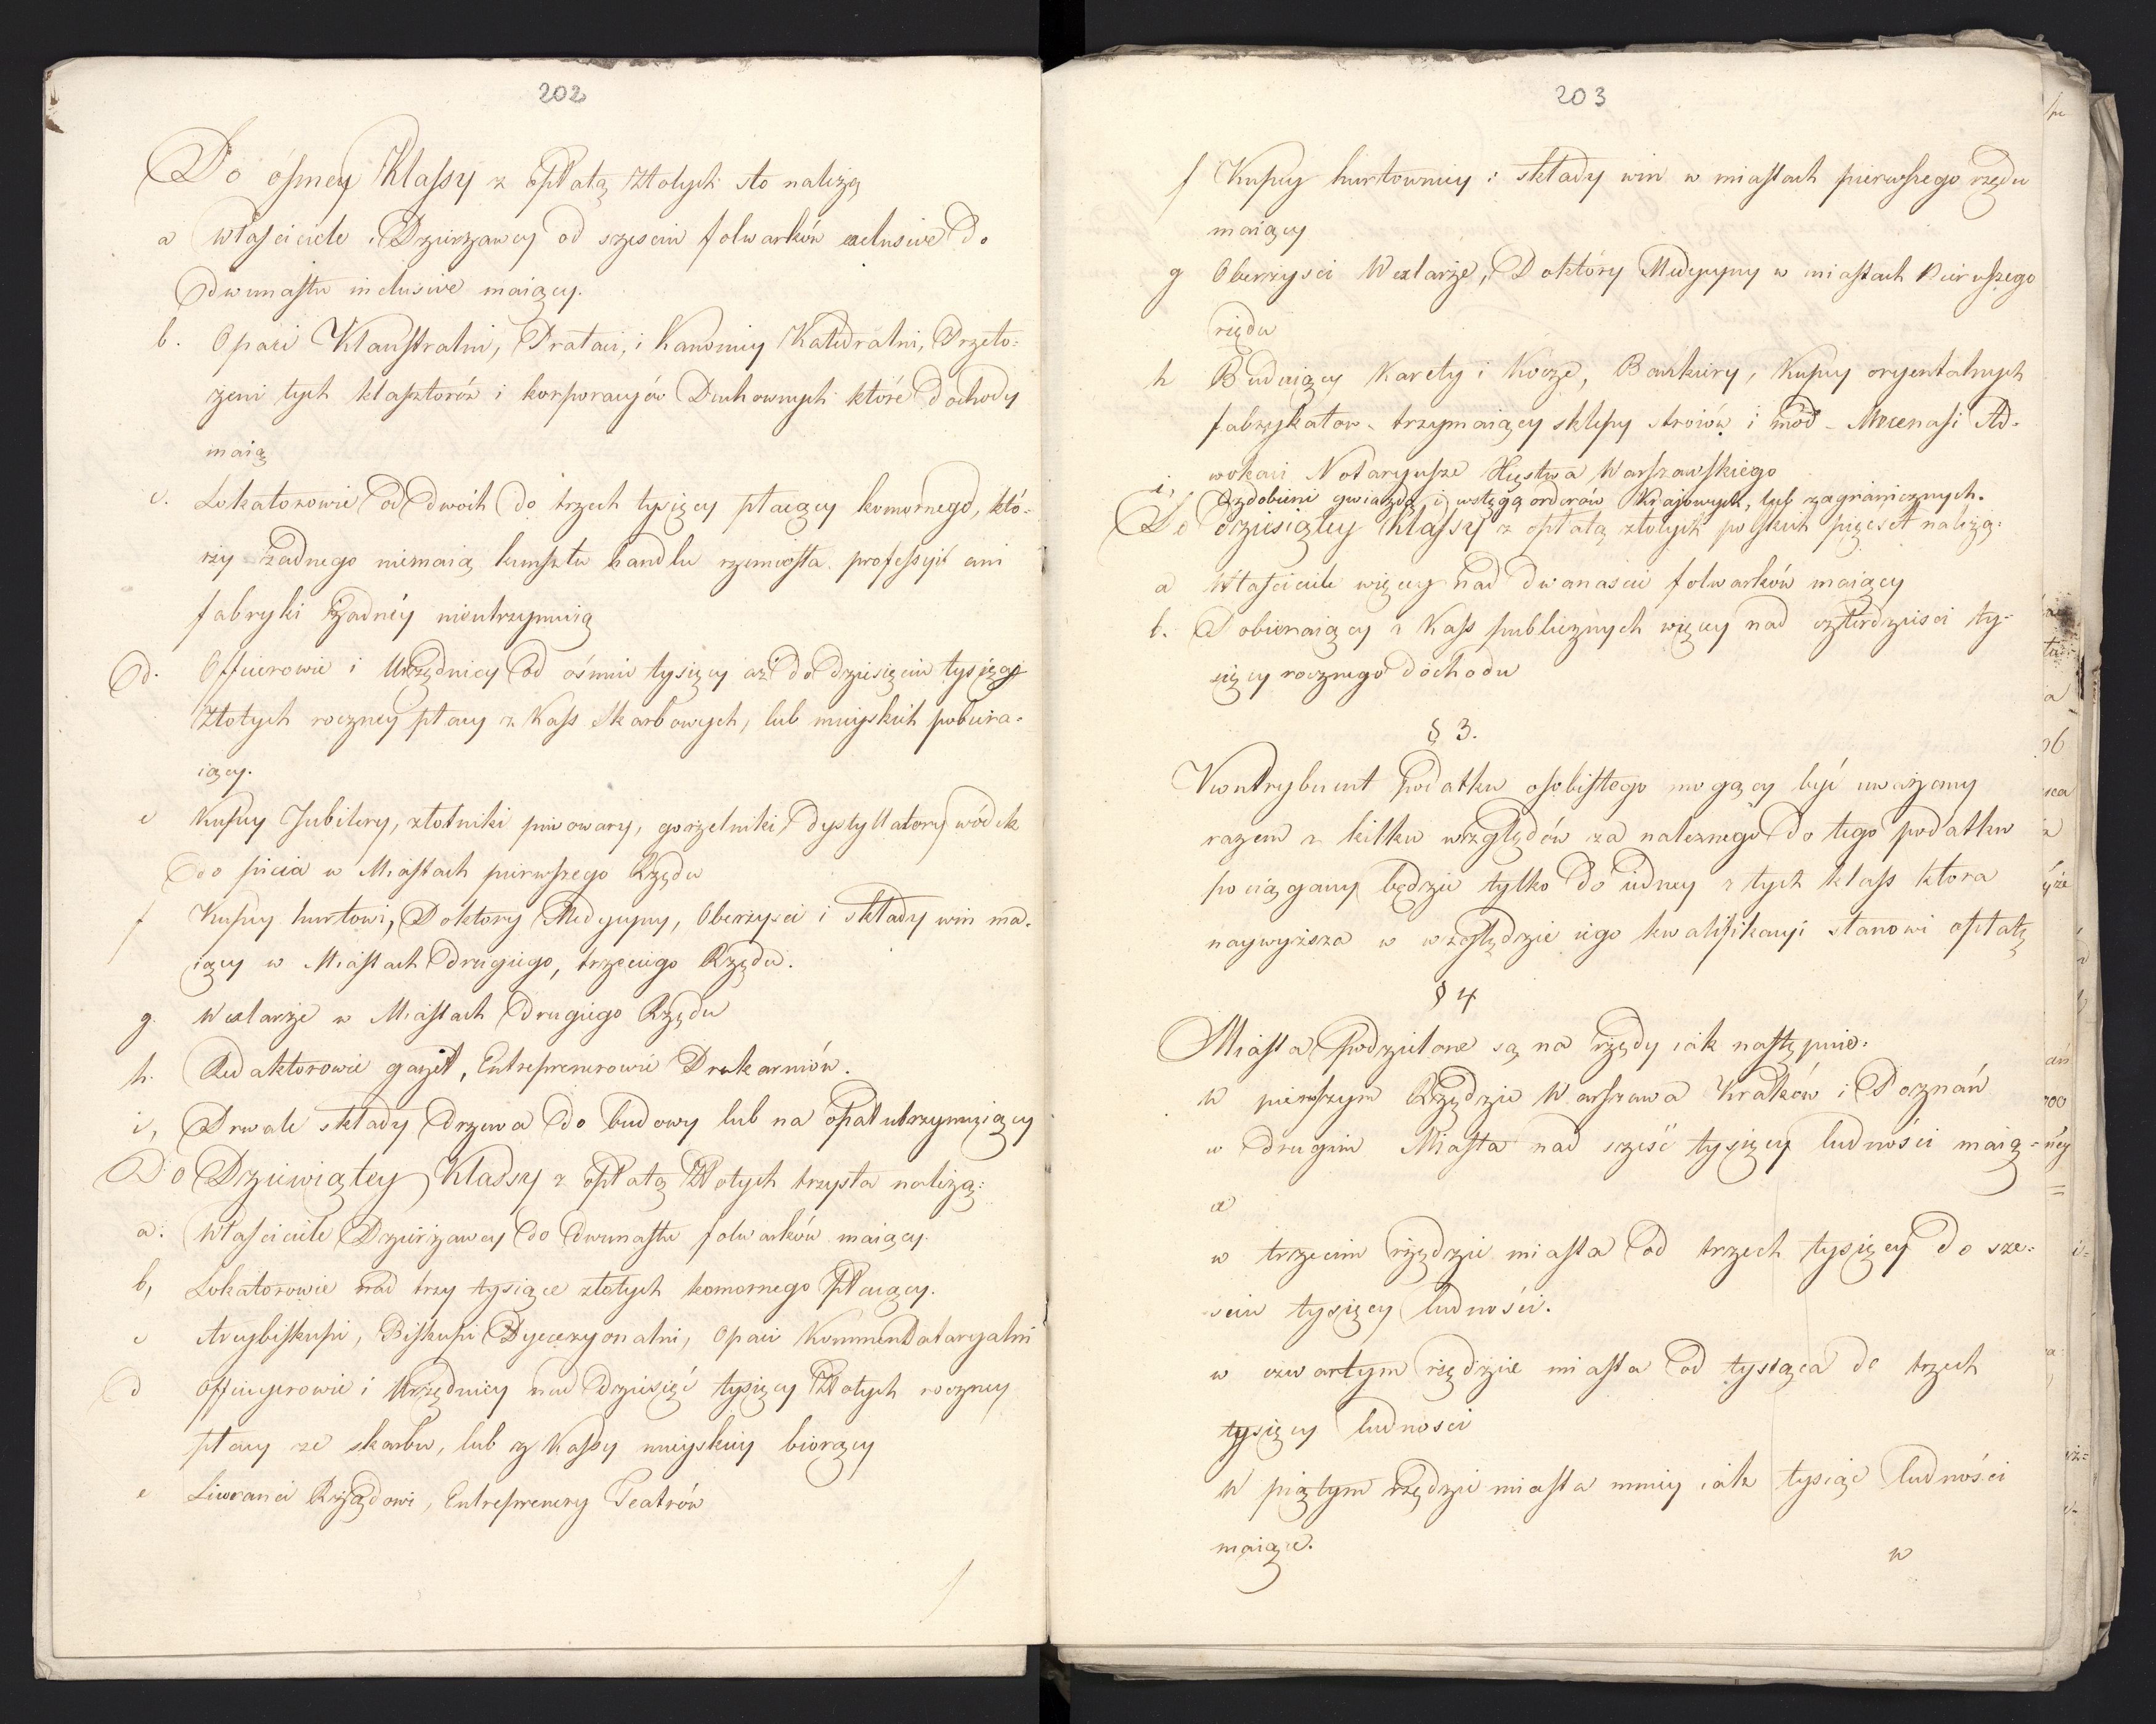 202
Do ósmey Klassy z opłatą Złotych sto należą
a Właściciele i Dzierżawcy od sześciu folwarków exclusive do
dwunastu inclusive maiący.
b. Opaci Klaustralni, Prałaci, i Kanonicy Katedralni, Przeło-
żeni tych klasztorów i korporacyów Duchownych które dochody
maią
c. Lokatorowie od dwóch do trzech tysięcy płacący komornego, któ-
rzy żadnego niemaią kunsztu handlu rzemiosła professyi ani
fabryki żadnéy nieutrzymuią
d. Officerowie i Urzędnicy od ośmiu tysięcy aż do dziesięciu tysięcy
Złotych roczney płacy z Kass Skarbowych, lub mieyskich pobiera-
iący.
e Kupcy Jubilery, złotniki piwowary, gorzelniki dystyllatory wódek
do picia w Miastach pierwszego Rzędu
f Kupcy hurtowi, Doktory Medycyny, Oberzyści i składy win ma-
iący w Miastach drugiego, trzeciego Rzędu.
g. Wexlarze w Miastach drugiego Rzędu
h. Redaktorowie gazet, Entreprenerowie Drukarniów.
i, Drwale składy drzewa do budowy lub na opał utrzymuiący
Do Dziewiątey Klassy z opłatą Złotych trzysta należą:
a. Właściciele Dzierżawcy do dwunastu folwarków maiący.
b, Lokatorowie nad trzy tysiące złotych komornego Płacący.
c Arcybiskupi, Biskupi Dyecezyonalni, Opaci Kommendataryalni
d Officyerowie i Urzędnicy nad dziesięć tysięcy Złotych roczney
płacy ze skarbu, lub z Kassy mieyskiey biorący
e Liweranci Rządowi, Entreprenery Teatrów
f
203
f Kupcy hurtownicy i składy win w miastach pierwszego rzędu
maiący
g Oberzysci Wexlarze, Doktory Medycyny w miastach Pierwszego
rzędu
h Buduiący Karety i Kocze, Bankiery, Kupcy oryentalnych
fabrykatow trzymaiący sklepy stroiów i mód – Mecenasi Ad-
wokaci Notaryusze Xięstwa Warszawskiego
i, Ozdobieni gwiazdą i wstęgą orderów Krajowych, lub zagranicznych.
Do dziesiątey klassy z opłatą złotych polskich pięćset należą:
a Właściciele więcey nad dwanaście folwarków maiący
b. Pobieraiący z Kass publicznych więcey nad czterdzieści ty-
sięcy rocznego dochodu
§ 3.
Kontrybuent podatku osobistego mogący być uważany
razem z kilku względów za należnego do tego podatku
pociągany będzie tylko do iedney z tych klass ktora
naywyższa w względzie iego kwalifikacyi stanowi opłatę
§ 4
Miasta podzielone są na rzędy iak następuie.
w pierwszym Rzędzie Warszawa Kraków i Poznań
w drugim Miasta nad sześć tysięcy ludności maią-
ce
w trzecim rzędzie miasta od trzech tysięcy do sze-
sciu tysięcy ludności.
w czwartym rzędzie miasta od tysiąca do trzech
tysięcy ludnosci
W piątym rzędzie miasta mniey iak tysiąc ludności
maiące.
w